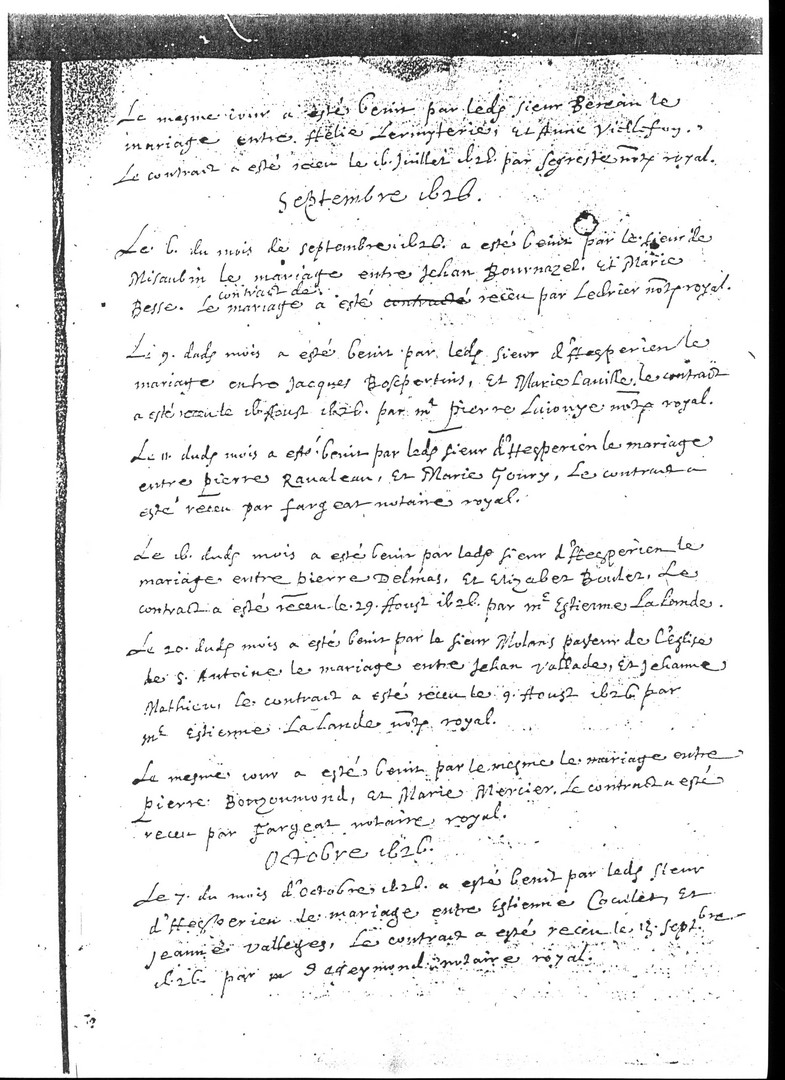 Le mesme iour a esté benit par ledt sieur Bereau le
mariage entre Hélie Lermyterie, et Anne Viellefon.
Le contract a esté receu le 16. Juillet 1626. par Segreste notre royal.
Septembre 1626.
Le 6. du mois de septembre 1626. a esté benit par le sieur de
Misaubin le mariage entre Jehan Bournazel. et Marie
contract de
Besse. Le mariage a esté receu par Ledrier notre royal.
Le 9. dudt mois a esté benit par ledt sieur d'Hesperien le
mariage entre Jacques Bospertins, et Marie Laville, le contract
a esté receu le 16 Aoust 1626. par mt pierre notre royal.
Le 11. dudt mois a esté benit par ledt sieur d'Hesperien le mariage
entre pierre Ravaleau, et Marie Goury, Le contract a
esté receu par fargeat notaire royal.
Le 16. dudt mois a esté benit par ledt sieur d'Hesperien le
mariage entre pierre Delmas, et Elizabet Boulet, Le
contract a esté receu le 29. Aoust 1626. par me Estienne La Lande.
Le 20. dudt mois a esté benit par le sieur Molans pasteur de l'Eglise
de S. Antoine le mariage entre Jehan Vallade, et Jehanne
Mathieu, le contract a esté receu le 9. Aoust 1626 par
me Estienne La Lande notre royal.
Le mesme iour a esté benit par le mesme le mariage entre
pierre Bonzoumond, et Marie Mercier, Le contract a esté
receu par Fargeat notaire royal.
Octobre 1626.
Le 7. du mois d'Octobre 1626. a esté benit par ledt sieur
d'Hesperien le mariage entre Estienne Coculet, et
Jeanne Valleyes, Le contract a esté receu le 13. Septbre
1626 par notaire royal.